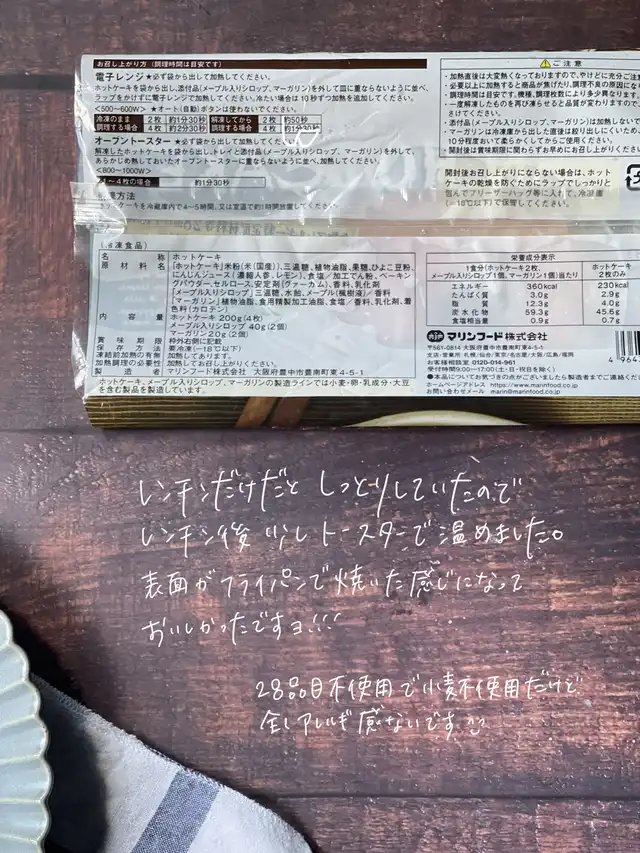 お召し上がり方（調理時間は目安です）
電子レンジ ★必ず袋から出して加熱してください。
ホットケーキを袋から出し、添付品（メープル入りシロップ、マーガリン）を外して皿に重ならないように並べ、
ラップをかけずに電子レンジで加熱してください。冷たい場合は10秒ずつ加熱を追加してください。
<500～600W> ★オート（自動）ボタンは使わないでください。
冷凍のまま調理する場合 2枚 約1分30秒 4枚 約2分30秒
解凍してから調理する場合 2枚 約50秒 4枚 約1分30秒
オーブントースター ★必ず袋から出して加熱してください。
解凍したホットケーキを袋から出し、トレイと添付品（メープル入りシロップ、マーガリン）を外して、
あらかじめ熱しておいたオーブントースターに重ならないように並べ、加熱してください。
<800～1000W>
4枚の場合 約1分30秒
方法
ホットケーキを冷蔵庫内で4～5時間、又は室温で約1時間放置してください。
⚠ご注意
・加熱直後は大変熱くなっておりますので、やけどに充分ご注
・必要以上に加熱すると商品が焦げたり、調理不良の原因にな
・調理時間は目安です。機種、調理枚数により多少異なります。
・一度解凍したものを再び凍らせると品質が変わりますので
さけてください。
・添付品（メープル入りシロップ、マーガリン）は加熱しないで
・マーガリンは冷凍庫から出した直後は絞り出しにくいため
10分程おいて柔らかくしてからご使用ください。
・開封後は賞味期限に関わらずお早めにお召し上がりください
開封後お召し上がりにならない場合は、ホット
ケーキの乾燥を防ぐためにラップでしっかりと
包んでフリーザーバッグ等に入れて、冷凍庫
（-18℃以下）で保管してください。
（冷凍食品）
名称 ホットケーキ
原材料名 〔ホットケーキ〕米粉（米（国産））、三温糖、植物油脂、果糖、ひよこ豆粉、
にんじんジュース（濃縮人参、レモン）、食塩／加工でん粉、ベーキン
グパウダー、セルロース、安定剤（グァーガム）、香料、乳化剤
〔メープル入りシロップ〕三温糖、水飴、メープル（楓樹液）／香料
〔マーガリン〕植物油脂、食用精製加工油脂、食塩／香料、乳化剤、着
色料（カロテン）
内容量 ホットケーキ 200g（4枚）
メープル入りシロップ 40g（2個）
マーガリン 20g（2個）
賞味期限 枠外右側に記載
保存方法 要冷凍（-18℃以下）
凍結前加熱の有無 加熱してあります。
加熱調理の必要性 加熱してお召し上がりください。
製造者 マリンフード株式会社 大阪府豊中市豊南町東4-5-1
ホットケーキ、メープル入りシロップ、マーガリンの製造ラインでは小麦・卵・乳成分・大豆
を含む製品を製造しています。
栄養成分表示
1食分（ホットケーキ2枚、メープル入りシロップ1個、マーガリン1個）当たり ホットケーキ2枚のみ
エネルギー 360kcal 230kcal
たんぱく質 3.0g 2.9g
脂質 12.3g 4.0g
炭水化物 59.3g 45.6g
食塩相当量 0.9g 0.7g
マリンフード株式会社
〒561-0814 大阪府豊中市豊南町東4-5-1
支店・営業所 札幌/仙台/東京/名古屋/大阪/広島/福岡
お客様相談室 0120-014-961
受付時間9:00～17:00（土・日・祝日を除く）
●本品についてお気づきの点がございましたら製造者までご連絡くだ
ホームページアドレス https://www.marinfood.co.jp
お問い合わせメール marin@marinfood.co.jp
4 964
レンチンだけだと しっとりしていたので
レンチン後 少し トースターで 温めました。
表面が フライパンで 焼いた 感じになって
おいしかったですョ!!!
28品目不使用で小麦不使用だけど
全しアレルギ感ないです